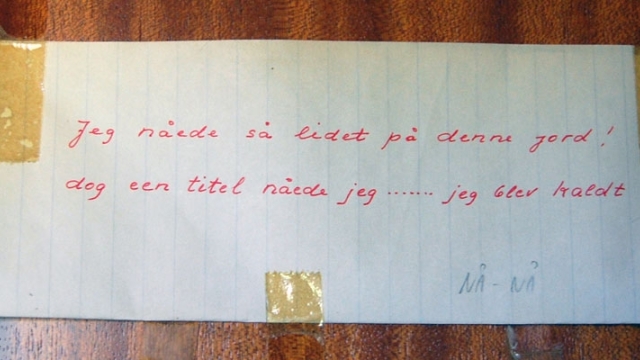 Jeg nåede så lidet på denne jord!
dog een titel nåede jeg ....... jeg blev kaldt
NÅ - NÅ